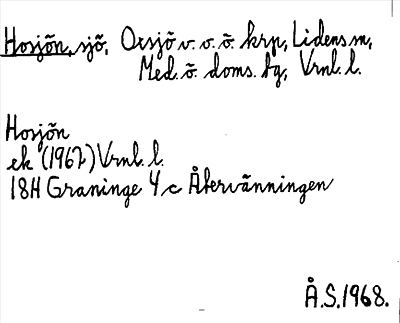 Hosjön, sjö, Oxsjö v. v. ö. krp, Lidens sn,
Med. ö. doms. bg, Vrnl. l.
Hosjön
ek (1962) Vrnl. l.
18H Graninge 4 c Återvänningen
Å.S. 1968.